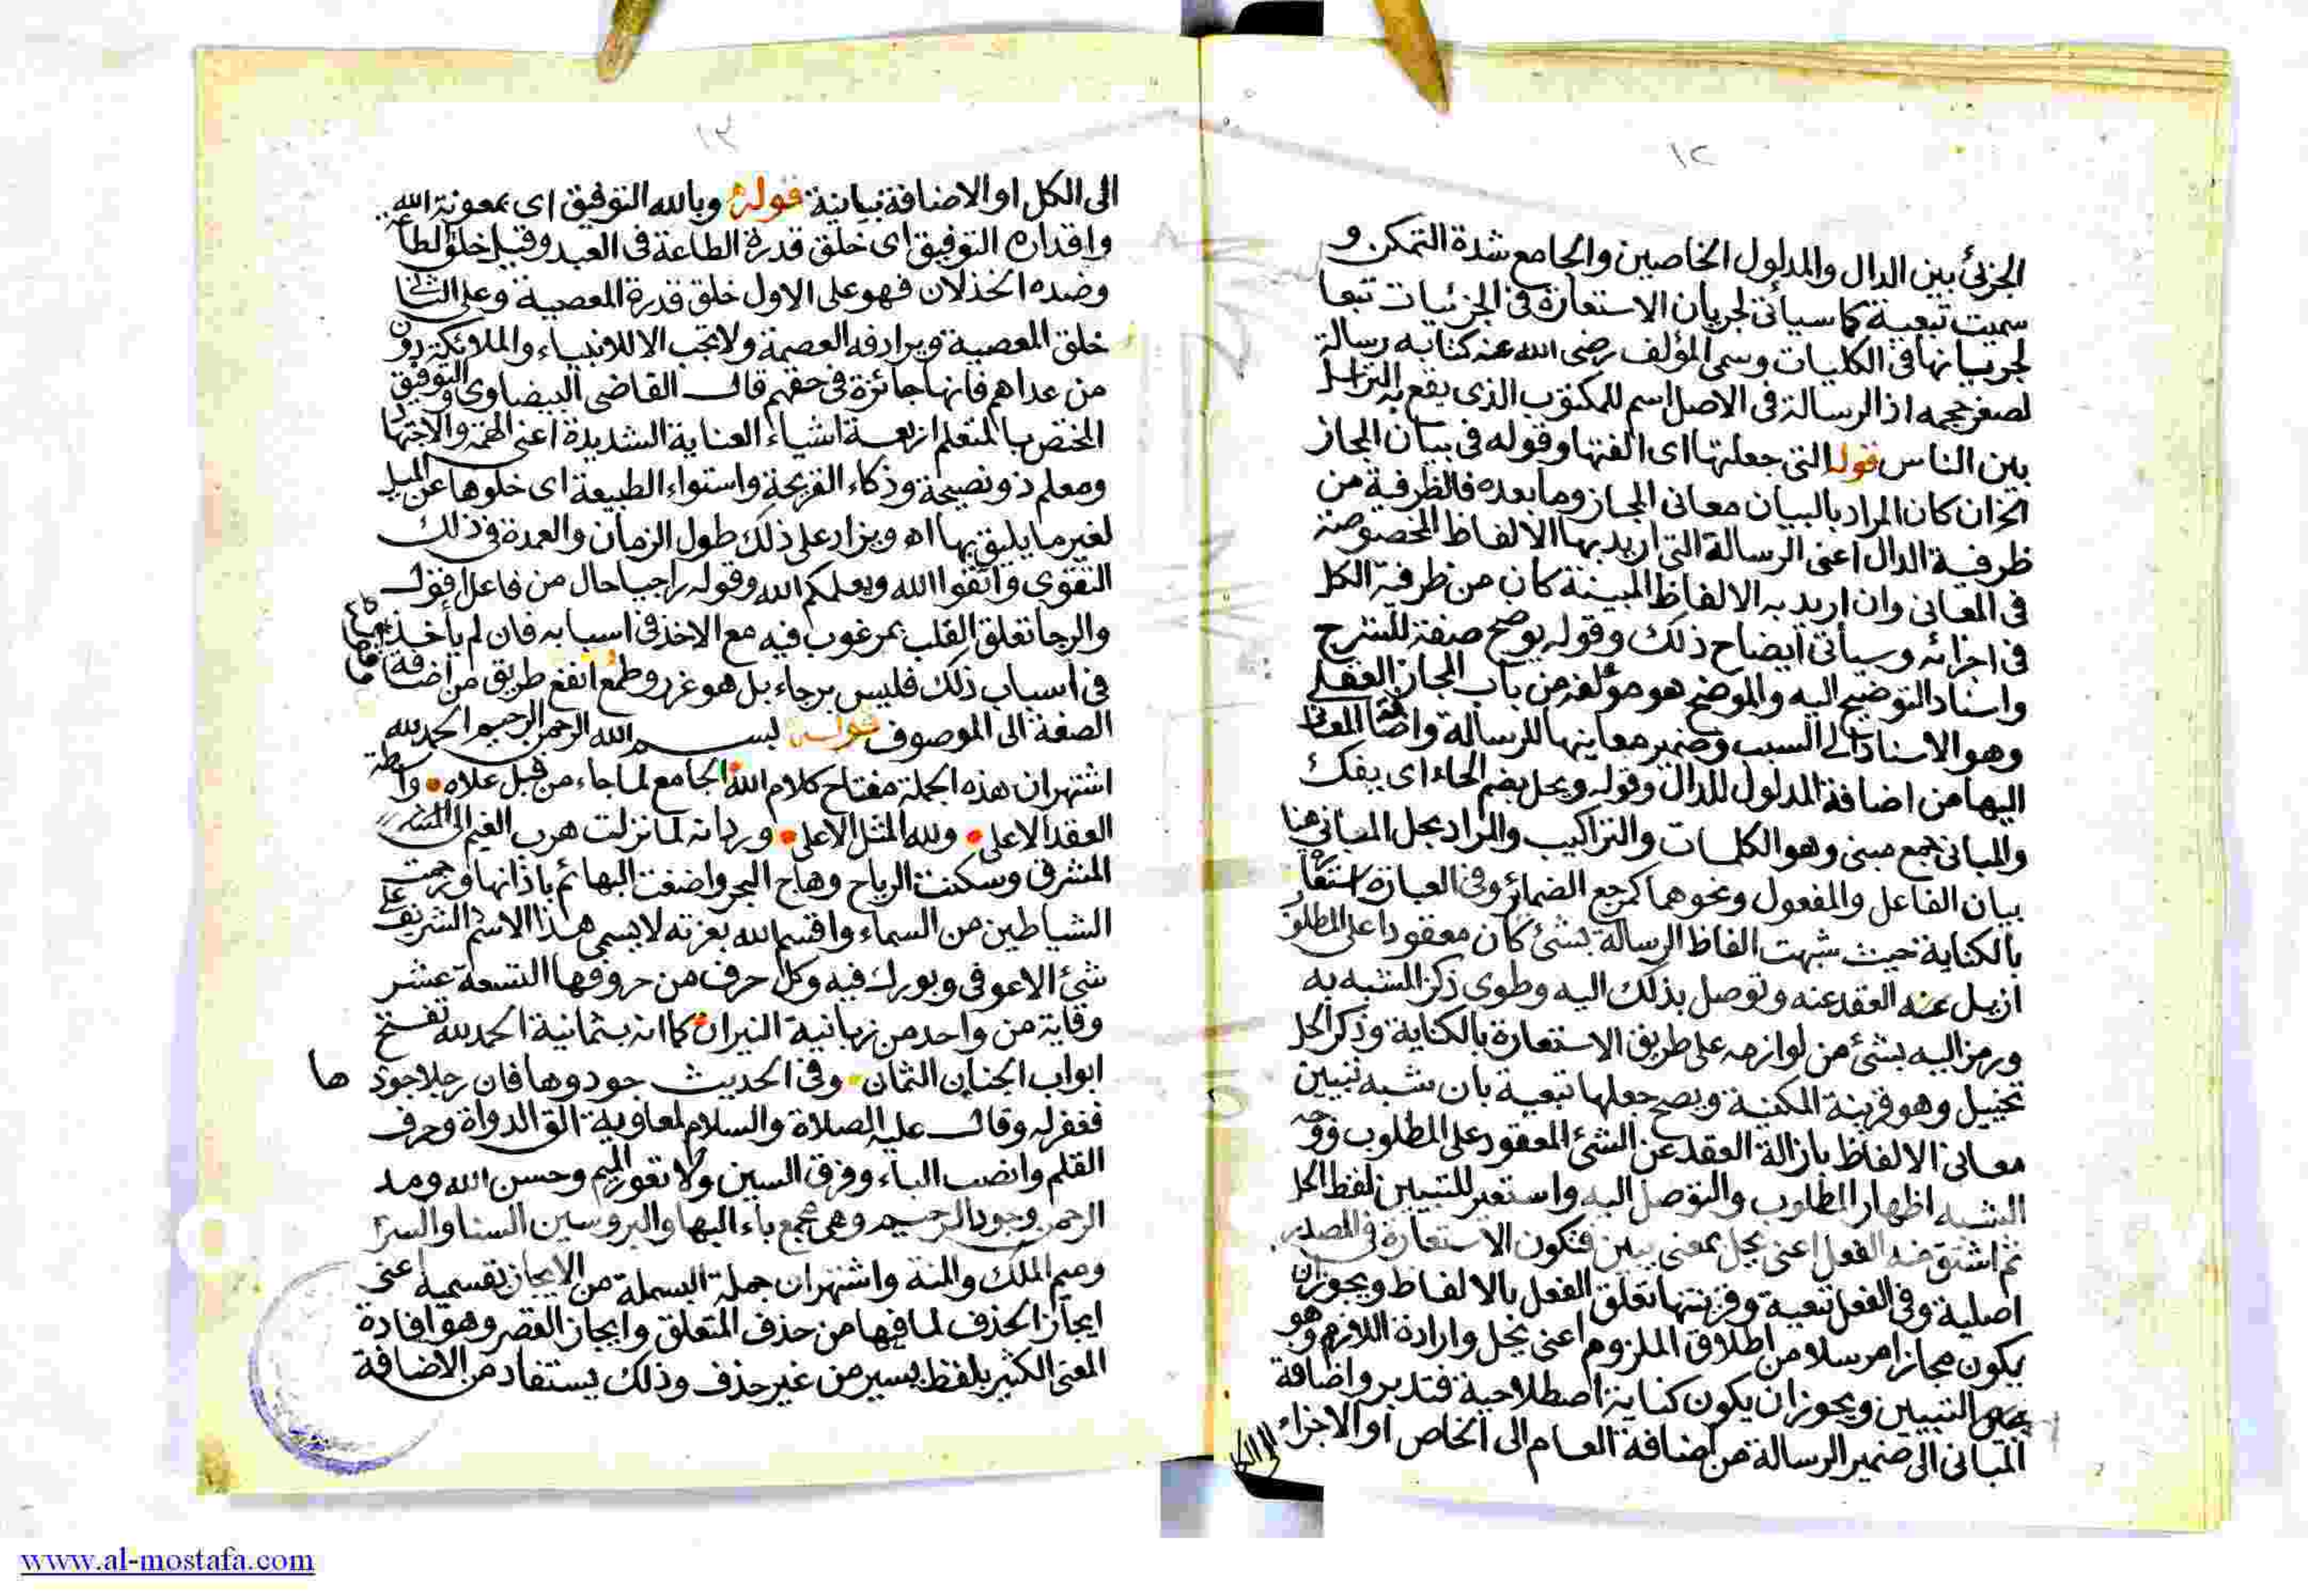 ١٢
الجزئى بين الدال والمدلول الخاصين والجامع شدة التمكن و
سميت تبعية كما سيأتى لجريان الاستعارة فى الجزئيات تبعا
لجريانها فى الكليات وسمى المؤلف رضى الله عنه كتابه رسالة
لصغر حجمه اذ الرسالة فى الاصل اسم للمكتوب الذى يقع به التراسل
بين الناس قوله التى جعلتها اى الفتها وقوله فى بيان المجاز
الخ ان كان المراد بالبيان معانى المجاز وما بعده فالظرفية من
ظرفية الدال اعنى الرسالة التى اريد بها الالفاظ المخصوصة
فى المعانى وان اريد به الالفاظ المبينة كان من ظرفية الكل
فى اجزائه وسيأتى ايضاح ذلك وقوله يوضح صفة للشرح
واسناد التوضيح اليه والموضح هو مؤلفه من باب المجاز العقلى
وهو الاسناد الى السبب وضمير معاينها للرسالة واضافة المعانى
اليها من اضافة المدلول للدال وقوله ويحل بضم الحاء اى يفك
والمبانى جمع مبنى وهو الكلمات والتراكيب والمراد بحل المبانى هنا
بيان الفاعل والمفعول ونحوهما كمرجع الضمائر وفى العبارة استعارة
بالكناية حيث شبهت الفاظ الرسالة بشئ كان معقودا على المطلوب
ازيل عنه العقد عنه وتوصل بذلك اليه وطوى ذكر المشبه به
ورمز اليه بشئ من لوازمه على طريق الاستعارة بالكناية وذكر الحل
تخييل وهو قرينة المكنية ويصح جعلها تبعية بان شبه تبيين
معانى الالفاظ بازالة العقد عن الشئ المعقود على المطلوب ووجه
الشبه اظهار المطلوب والتوصل اليه واستعير للتبيين لفظ الحل
ثم اشتق منه الفعل اعنى يحل بمعنى يبين فتكون الاستعارة فى المصدر
اصلية وفى الفعل تبعية وقرينتها تعلق الفعل بالالفاظ ويجوز ان
يكون مجازا مرسلا من اطلاق الملزوم اعنى يحل وارادة اللازم وهو
التبيين ويجوز ان يكون كناية اصطلاحية فتدبر واضافة
المبانى الى ضمير الرسالة من اضافة العام الى الخاص او الاجزاء
الى الكل
١٣
الى الكل او الاضافة بيانية قوله وبالله التوفيق اى بمعونة الله
واقداره التوفيق اى خلق قدرة الطاعة فى العبد وقيل خلق الطاعة
وضده الخذلان فهو على الاول خلق قدرة المعصية وعلى الثانى
خلق المعصية ويرادفه العصمة ولا تجب الا للانبياء والملائكة دون
من عداهم فانها جائزة فى حقهم قال القاضى البيضاوى والتوفيق
المختص بالمتعلم اربعة اشياء العناية الشديدة اعنى الهمة والاجتهاد
ومعلم ذو نصيحة وذكاء القريحة واستواء الطبيعة اى خلوها عن الميل
لغير ما يليق بها اه ويزاد على ذلك طول الزمان والعمدة فى ذلك
التقوى واتقوا الله ويعلمكم الله وقوله راجيا حال من فاعل اقول
والرجا تعلق القلب بمرغوب فيه مع الاخذ فى اسبابه فان لم يأخذ
فى اسباب ذلك فليس برجاء بل هو غرر وطمع انفع طريق من اضافة
الصفة الى الموصوف قوله بسم الله الرحمن الرحيم الحمد لله
اشتهر ان هذه الجملة مفتاح كلام الله الجامع لما جاء من قبل علاه واسطة
العقد الاعلى ولله المثل الاعلى ورد انه لما نزلت هرب الغيم الى
المشرق وسكنت الرياح وهاج البحر واضغت البهائم باذانها ورجمت
الشياطين من السماء واقسم الله بعزته لا يسمى هذا الاسم الشريف على
شئ الا عوفى وبورك فيه وكل حرف من حروفها التسعة عشر
وقاية من واحد من زبانية النيران كما انه بثمانية الحمد لله تفتح
ابواب الجنان الثمان وفى الحديث جودوها فان رجلا جودها
فغفر له وقال عليه الصلاة والسلام لمعاوية الق الدواة وحرف
القلم وانصب الباء وفرق السين ولا تعور الميم وحسن الله ومد
الرحمن وجود الرحيم وهى مجمع باء البها والبر وسين السنا والسر
وميم الملك والمنة واشتهر ان جملة البسملة من الايجاز بقسميه اعنى
ايجاز الحذف لما فيها من حذف المتعلق وايجاز القصر وهو افادة
المعنى الكثير بلفظ يسير من غير حذف وذلك يستفاد من الاضافة
www.al-mostafa.com